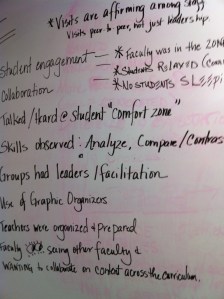 *Visits are affirming among staff
Visits peer to peer, not just leadership
Student engagement — * Faculty was in the ZONE
Collaboration — * Students RELAYED
* NO STUDENTS SLEEPI
Talked/Heard @ student "comfort zone"
Skills observed: Analyze, Compare/Contras
Groups had leaders/facilitation
Use of Graphic Organizers
Teachers were organized & prepared
Faculty seeing other faculty &
WANTING to collaborate on content across the curriculum.